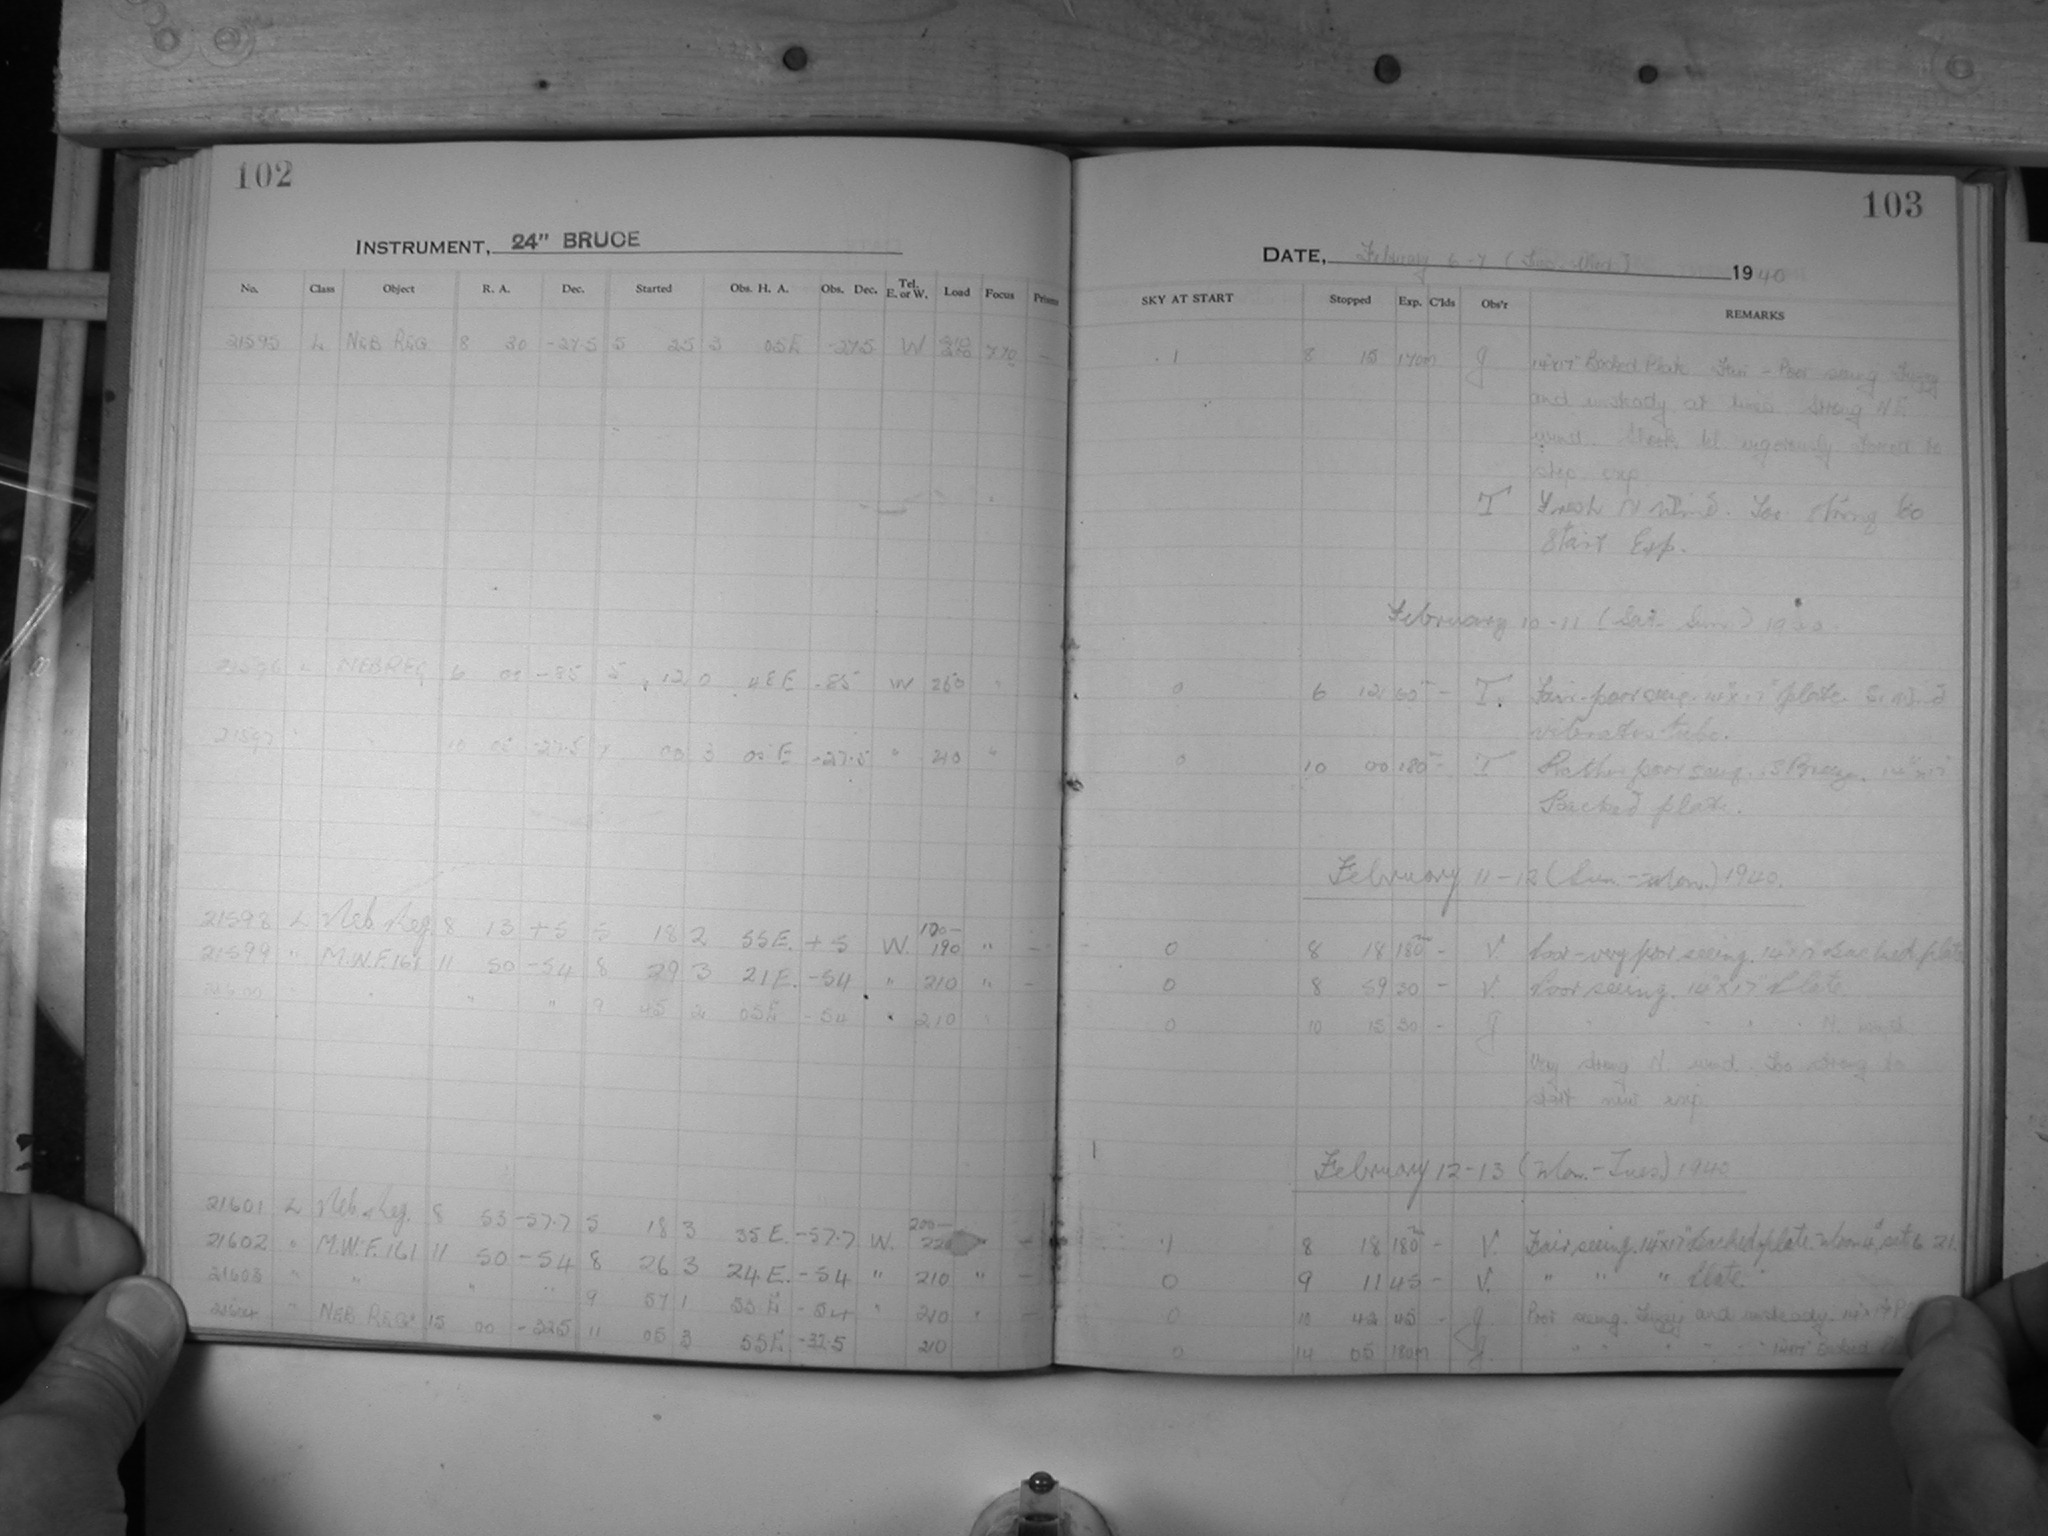 102
INSTRUMENT, 24" BRUCE
No. Class Object R. A. Dec. Started Obs. H. A. Obs. Dec. Tel. E. or W. Load Focus Prisms
21595 L NEB REG 8 30 -27.5 5 25 3 05E -27.5 W
21596 NEB REG 6 00 -85 5 12 0 48E -85 W 260
21597 " " 10 05 -27.5 7 00 3 05 E -27.5 " 210 "
21598 L Neb. Reg. 8 13 +5 5 18 2 55E. +5 W. 190 " -
21599 " M.W.F.161 11 50 -54 8 29 3 21E. -54 " 210 " -
21600 " " " 9 45 2 05E -54 " 210
21601 L Neb. Reg. 8 53 -57.7 5 18 3 35E. -57.7 W. 200- 220 " -
21602 " M.W.F.161 11 50 -54 8 26 3 24E. -54 " 210 " -
21603 " " " " 9 57 1 55E -54 " 210 " -
21604 " NEB REG 15 00 -32.5 11 05 3 55E -32.5 210
103
DATE, February 6-7 (Tues.-Wed.) 1940
SKY AT START Stopped Exp. C'lds Obs'r REMARKS
.1 8 15 170m J 14"x17" Backed Plate Fair - Poor seeing Fuzzy
and unsteady at times Strong N.E.
wind. Shook tel vigorously forced to
stop exp
T Fresh N Wind. Too strong to
Start Exp.
February 10-11 (Sat. Sun.) 1940
0 6 12 60 - T. Fair-poor seeing. 14"x17" plate. S. Wind
vibrates tube.
0 10 00 180 - T Rather poor seeing. S Breeze. 14"x17"
Backed plate.
February 11-12 (Sun.-Mon.) 1940.
0 8 18 180 - V. Poor-very poor seeing. 14"x17" Backed plate
0 8 59 30 - V. Poor seeing. 14"x17" Plate
0 10 15 30 - J " " " " N. wind
Very strong N. wind. Too strong to
start new exp
February 12-13 (Mon.-Tues.) 1940
.1 8 18 180 - V. Fair seeing. 14"x17" Backed plate. Moon 4d, set 6 21.
0 9 11 45 - V. " " " Plate
0 10 42 45 - J. Poor seeing. Fuzzy and unsteady. 14"x17"
0 14 05 180m J. " " " " 14x17" Backed